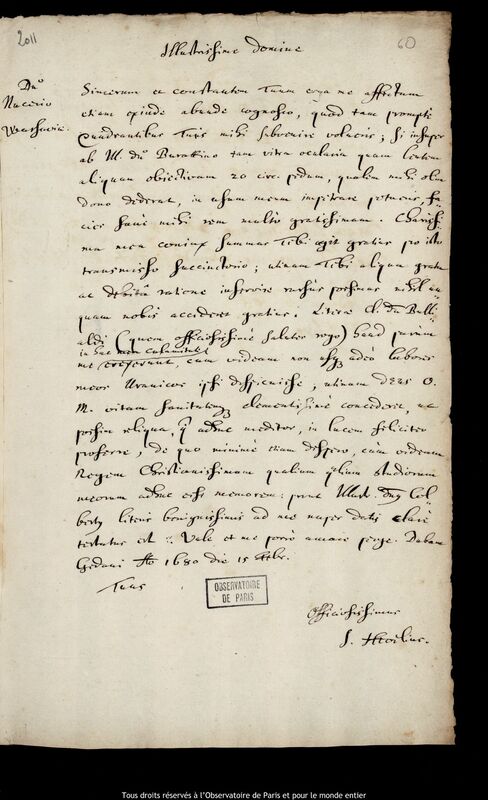 2011
60
Illustrissime Domine
Dno
Nucerio
Warsaviae.
Sincerum et constantem Tuum erga me affectum
etiam exinde abunde cognosco, quod tam promptè
Quadrantibus Tuis mihi subvenire volueris; si insuper
ab Ill. Dno Burattino tam vitra ocularia quam lentem
aliquam objectivam 20 circ. pedum, qualem mihi olim
dono dederat, in usum meum impetrare potueris, fe-
ceris sanè mihi rem multò gratissimam. Charissi-
ma mea conjux summas Tibi agit gratias pro isto
transmisso succinctorio; utinam Tibi aliqua grata
ac debita ratione inservire rursus possimus nihil un-
quam nobis accideret gratius. Literae Cl. Dn. Bulli-
aldi (quem officiosissimè salutes rogo) haud parùm
in hac mea calamitate
me erexerunt, cum videam non usque adeo labores
meos Uranicos ipsi despicuisse, utinam Deus O.
M. vitam sanitatemque clementissimè concederet, ut
possim reliqua, quae adhuc meditor, in lucem feliciter
proferre, de quo minimè etiam despero, cum ordeam
Regem Christianissimum qualium qualium studiorum
meorum adhuc esse memorem: prout Illust. Dnus Col-
bertus literis benignissimis ad me nuper datis clarè
testatus est. Vale et me porrò amare perge. Dabam
Gedani Ao 1680 die 15
Tuus
OBSERVATOIRE
DE PARIS
Officiosissimus
J. Hevelius.
Tous droits réservés à l'Observatoire de Paris et pour le monde entier